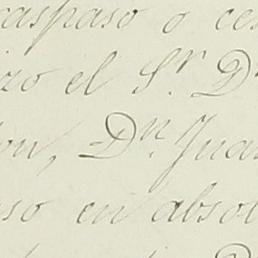 caspaso o ce
izo el Sr. Dn
on, Dn. Jua
so en absol